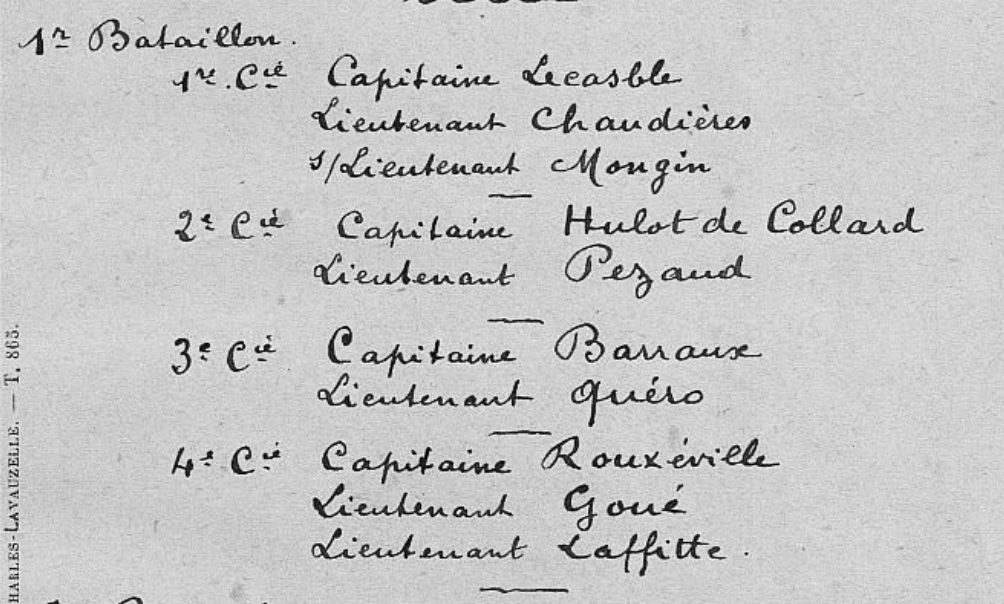 1r Bataillon.
1re. Cie Capitaine Lecasble
Lieutenant Chaudières
s/Lieutenant Mongin
2e Cie Capitaine Hulot de Collard
Lieutenant Pezaud
3e Cie Capitaine Barraux
Lieutenant Quéro
4e Cie Capitaine Rouxéville
Lieutenant Goué
Lieutenant Laffitte.
HARLES-LAVAUZELLE. — T. 865.